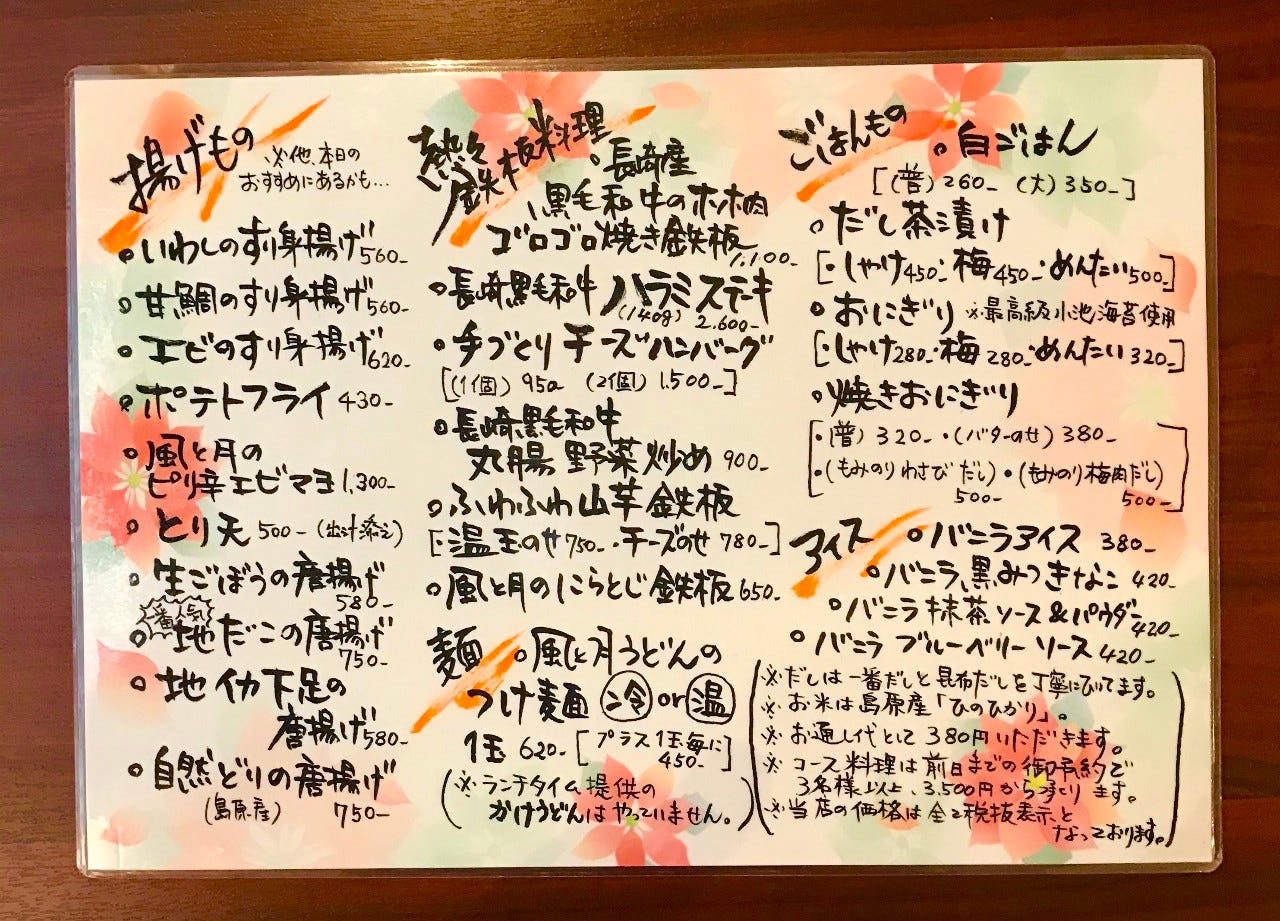 揚げもの
※他、本日の
おすすめにあるかも…
・いわしのすり身揚げ 560-
・甘鯛のすり身揚げ 560-
・エビのすり身揚げ 620-
・ポテトフライ 430-
・風と月の
ピリ辛エビマヨ 1,300-
・とり天 500- (出汁添え)
・生ごぼうの唐揚げ
580-
一番人気
・地だこの唐揚げ
750-
・地イカ下足の
唐揚げ 580-
・自然どりの唐揚げ
(島原産) 750-
熱々
鉄板料理
・長崎産
黒毛和牛のホホ肉
ゴロゴロ焼き鉄板
1,100-
・長崎黒毛和牛 ハラミステーキ
(140g) 2,600-
・手づくりチーズハンバーグ
[(1個) 950- (2個) 1,500-]
・長崎黒毛和牛
丸腸 野菜炒め 900-
・ふわふわ山芋鉄板
[温玉のせ 750-・チーズのせ 780-]
・風と月のにらとじ鉄板 650-
麺
・風と月うどんの
つけ麺 冷 or 温
1玉 620- [プラス1玉毎に
450-]
(※ランチタイム提供の
かけうどんはやっていません。)
ごはんもの
・白ごはん
[(普) 260- (大) 350-]
・だし茶漬け
[・しゃけ 450・梅 450・めんたい 500-]
・おにぎり ※最高級小池海苔使用
[・しゃけ 280・梅 280・めんたい 320-]
・焼きおにぎり
[・(普) 320-・(バターのせ) 380-
・(もみのりわさびだし)・(もみのり梅肉だし)
500- 500-]
アイス
・バニラアイス 380-
・バニラ黒みつきなこ 420-
・バニラ抹茶ソース&パウダー
420-
・バニラ ブルーベリーソース 420-
※だしは一番だしと昆布だしを丁寧にひいてます。
※お米は島原産「ひのひかり」。
※お通し代として380円いただきます。
※コース料理は前日までの御予約で
3名様以上、3,500円から承ります。
※当店の価格は全て税抜表示と
なっております。